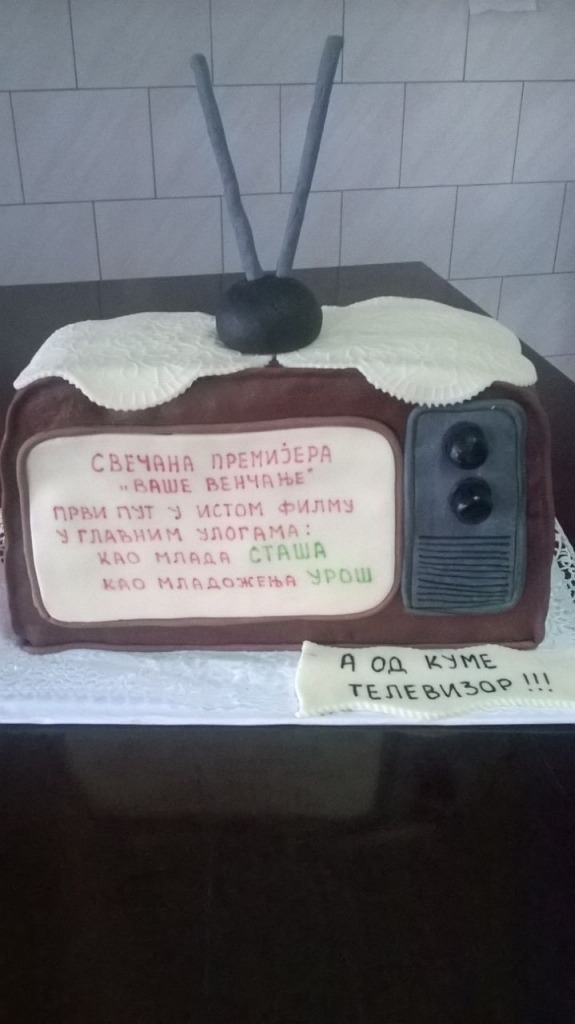 СВЕЧАНА ПРЕМИЈЕРА
„ВАШЕ ВЕНЧАЊЕ"
ПРВИ ПУТ У ИСТОМ ФИЛМУ
У ГЛАВНИМ УЛОГАМА:
КАО МЛАДА СТАША
КАО МЛАДОЖЕЊА УРОШ
А ОД КУМЕ
ТЕЛЕВИЗОР!!!